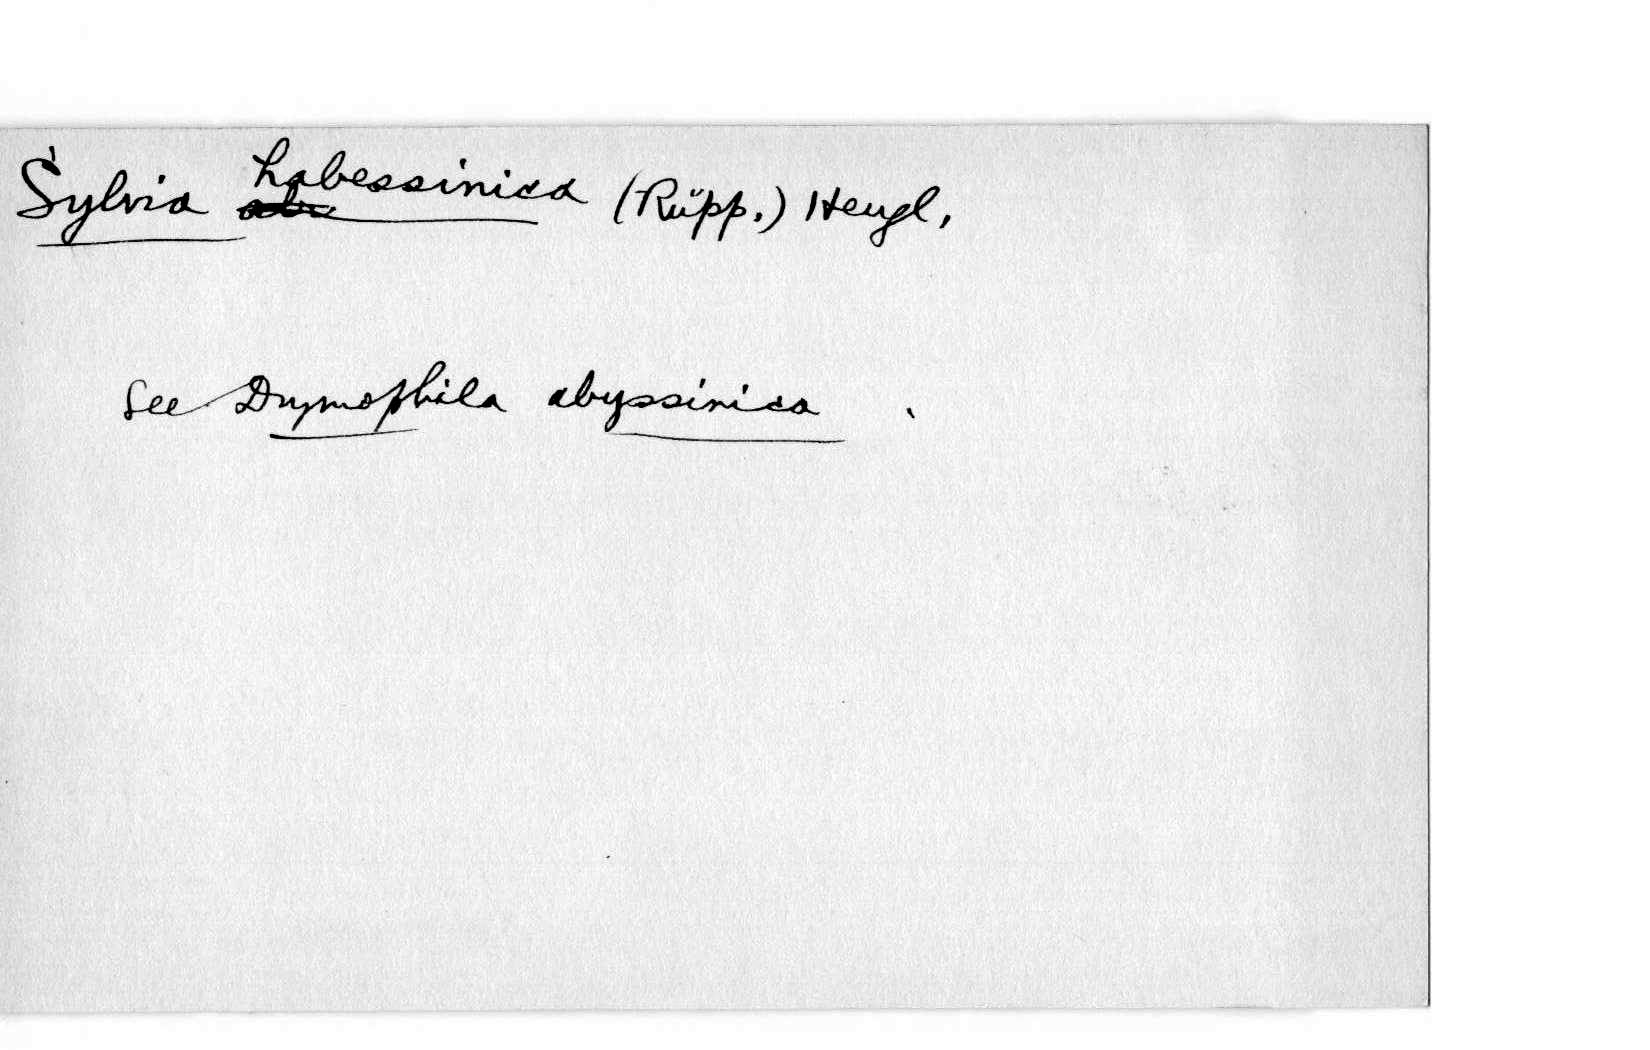 Sylvia habessinica (Rüpp.) Heugl.
see Drymophila abyssinica.